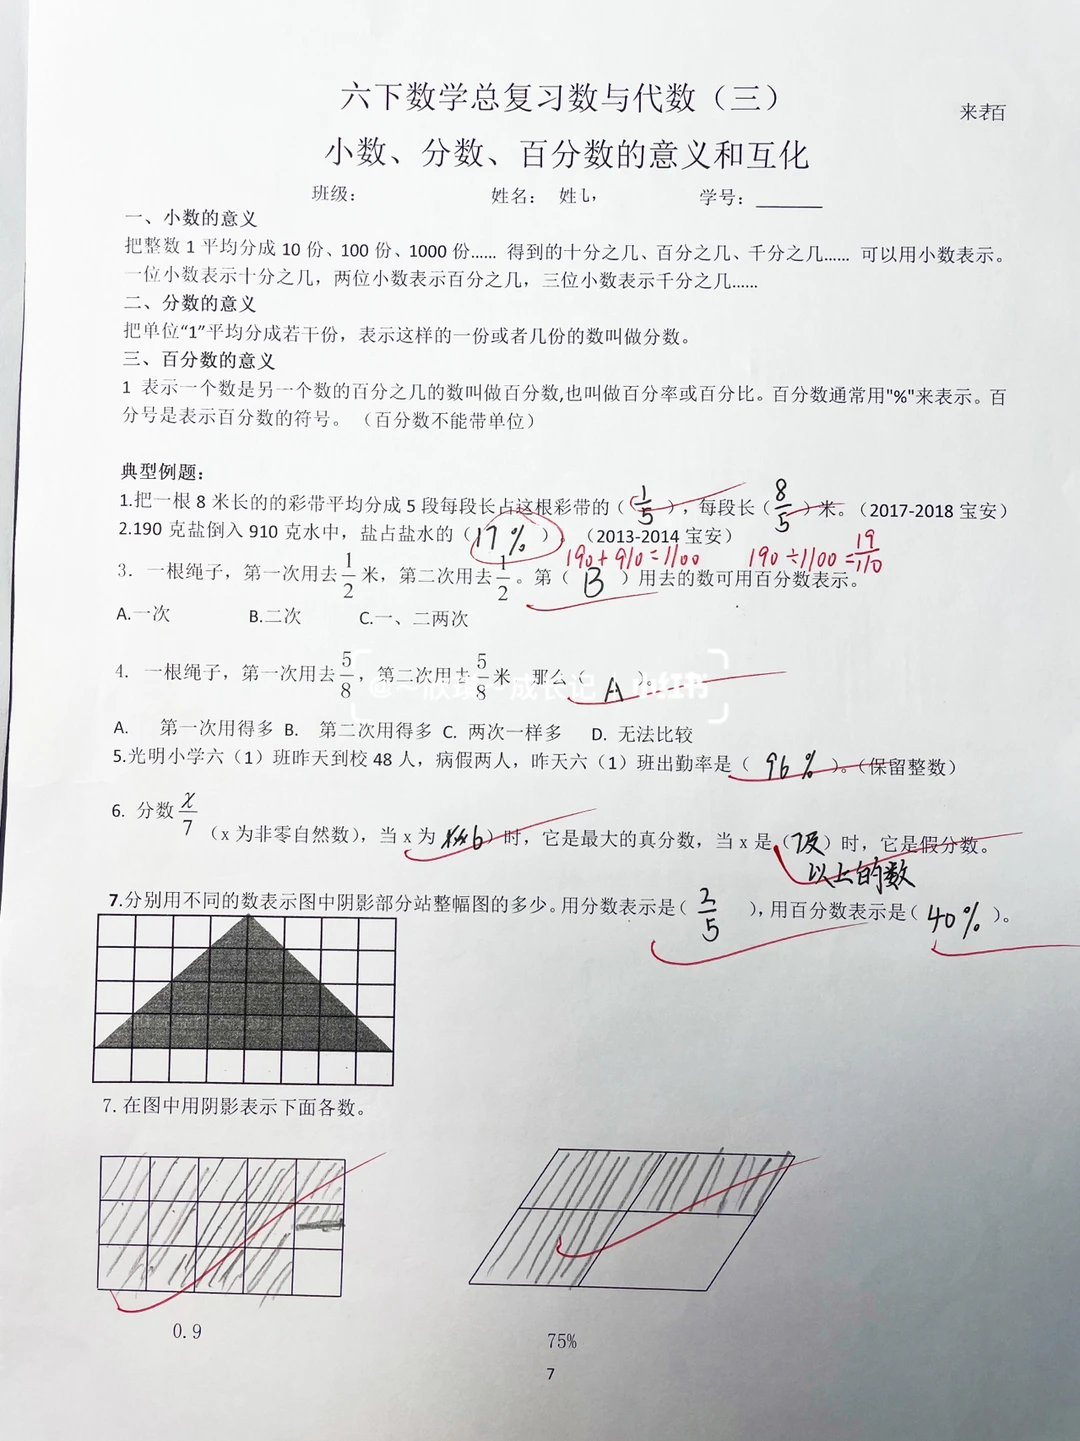 六下数学总复习数与代数（三）
来表百
小数、分数、百分数的意义和互化
班级： 姓名： 姓 学号：______
一、小数的意义
把整数1平均分成10份、100份、1000份…… 得到的十分之几、百分之几、千分之几…… 可以用小数表示。
一位小数表示十分之几，两位小数表示百分之几，三位小数表示千分之几……
二、分数的意义
把单位“1”平均分成若干份，表示这样的一份或者几份的数叫做分数。
三、百分数的意义
1 表示一个数是另一个数的百分之几的数叫做百分数,也叫做百分率或百分比。百分数通常用"%"来表示。百
分号是表示百分数的符号。（百分数不能带单位）
典型例题：
1.把一根8米长的的彩带平均分成5段每段长占这根彩带的（1/5），每段长（8/5）米。（2017-2018宝安）
2.190克盐倒入910克水中，盐占盐水的（17%）（2013-2014宝安）
190+910=1100 190÷1100=19/110
3. 一根绳子，第一次用去1/2米，第二次用去1/2。第（B）用去的数可用百分数表示。
A.一次 B.二次 C.一、二两次
4. 一根绳子，第一次用去5/8，第二次用去5/8米 那么（A）。
@~欣琪~成长记 小红书
A. 第一次用得多 B. 第二次用得多 C. 两次一样多 D. 无法比较
5.光明小学六（1）班昨天到校48人，病假两人，昨天六（1）班出勤率是（96%）。（保留整数）
6. 分数x/7（x为非零自然数），当x为 6）时，它是最大的真分数，当x是（7及）时，它是假分数。
以上的数
7.分别用不同的数表示图中阴影部分站整幅图的多少。用分数表示是（2/5），用百分数表示是（40%）。
7.在图中用阴影表示下面各数。
0.9
75%
7